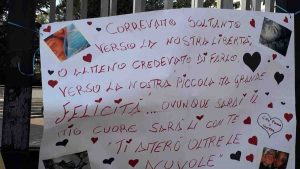 CORREVAMO SOLTANTO
VERSO LA NOSTRA LIBERTÀ,
O ALMENO CREDEVATO DI FARLO
VERSO LA NOSTRA PICCOLA MA GRANDE
FELICITÀ... OVUNQUE SARAI IL
MIO CUORE SARÀ LÌ CON TE
"TI AMERÒ OLTRE LE
NUVOLE"